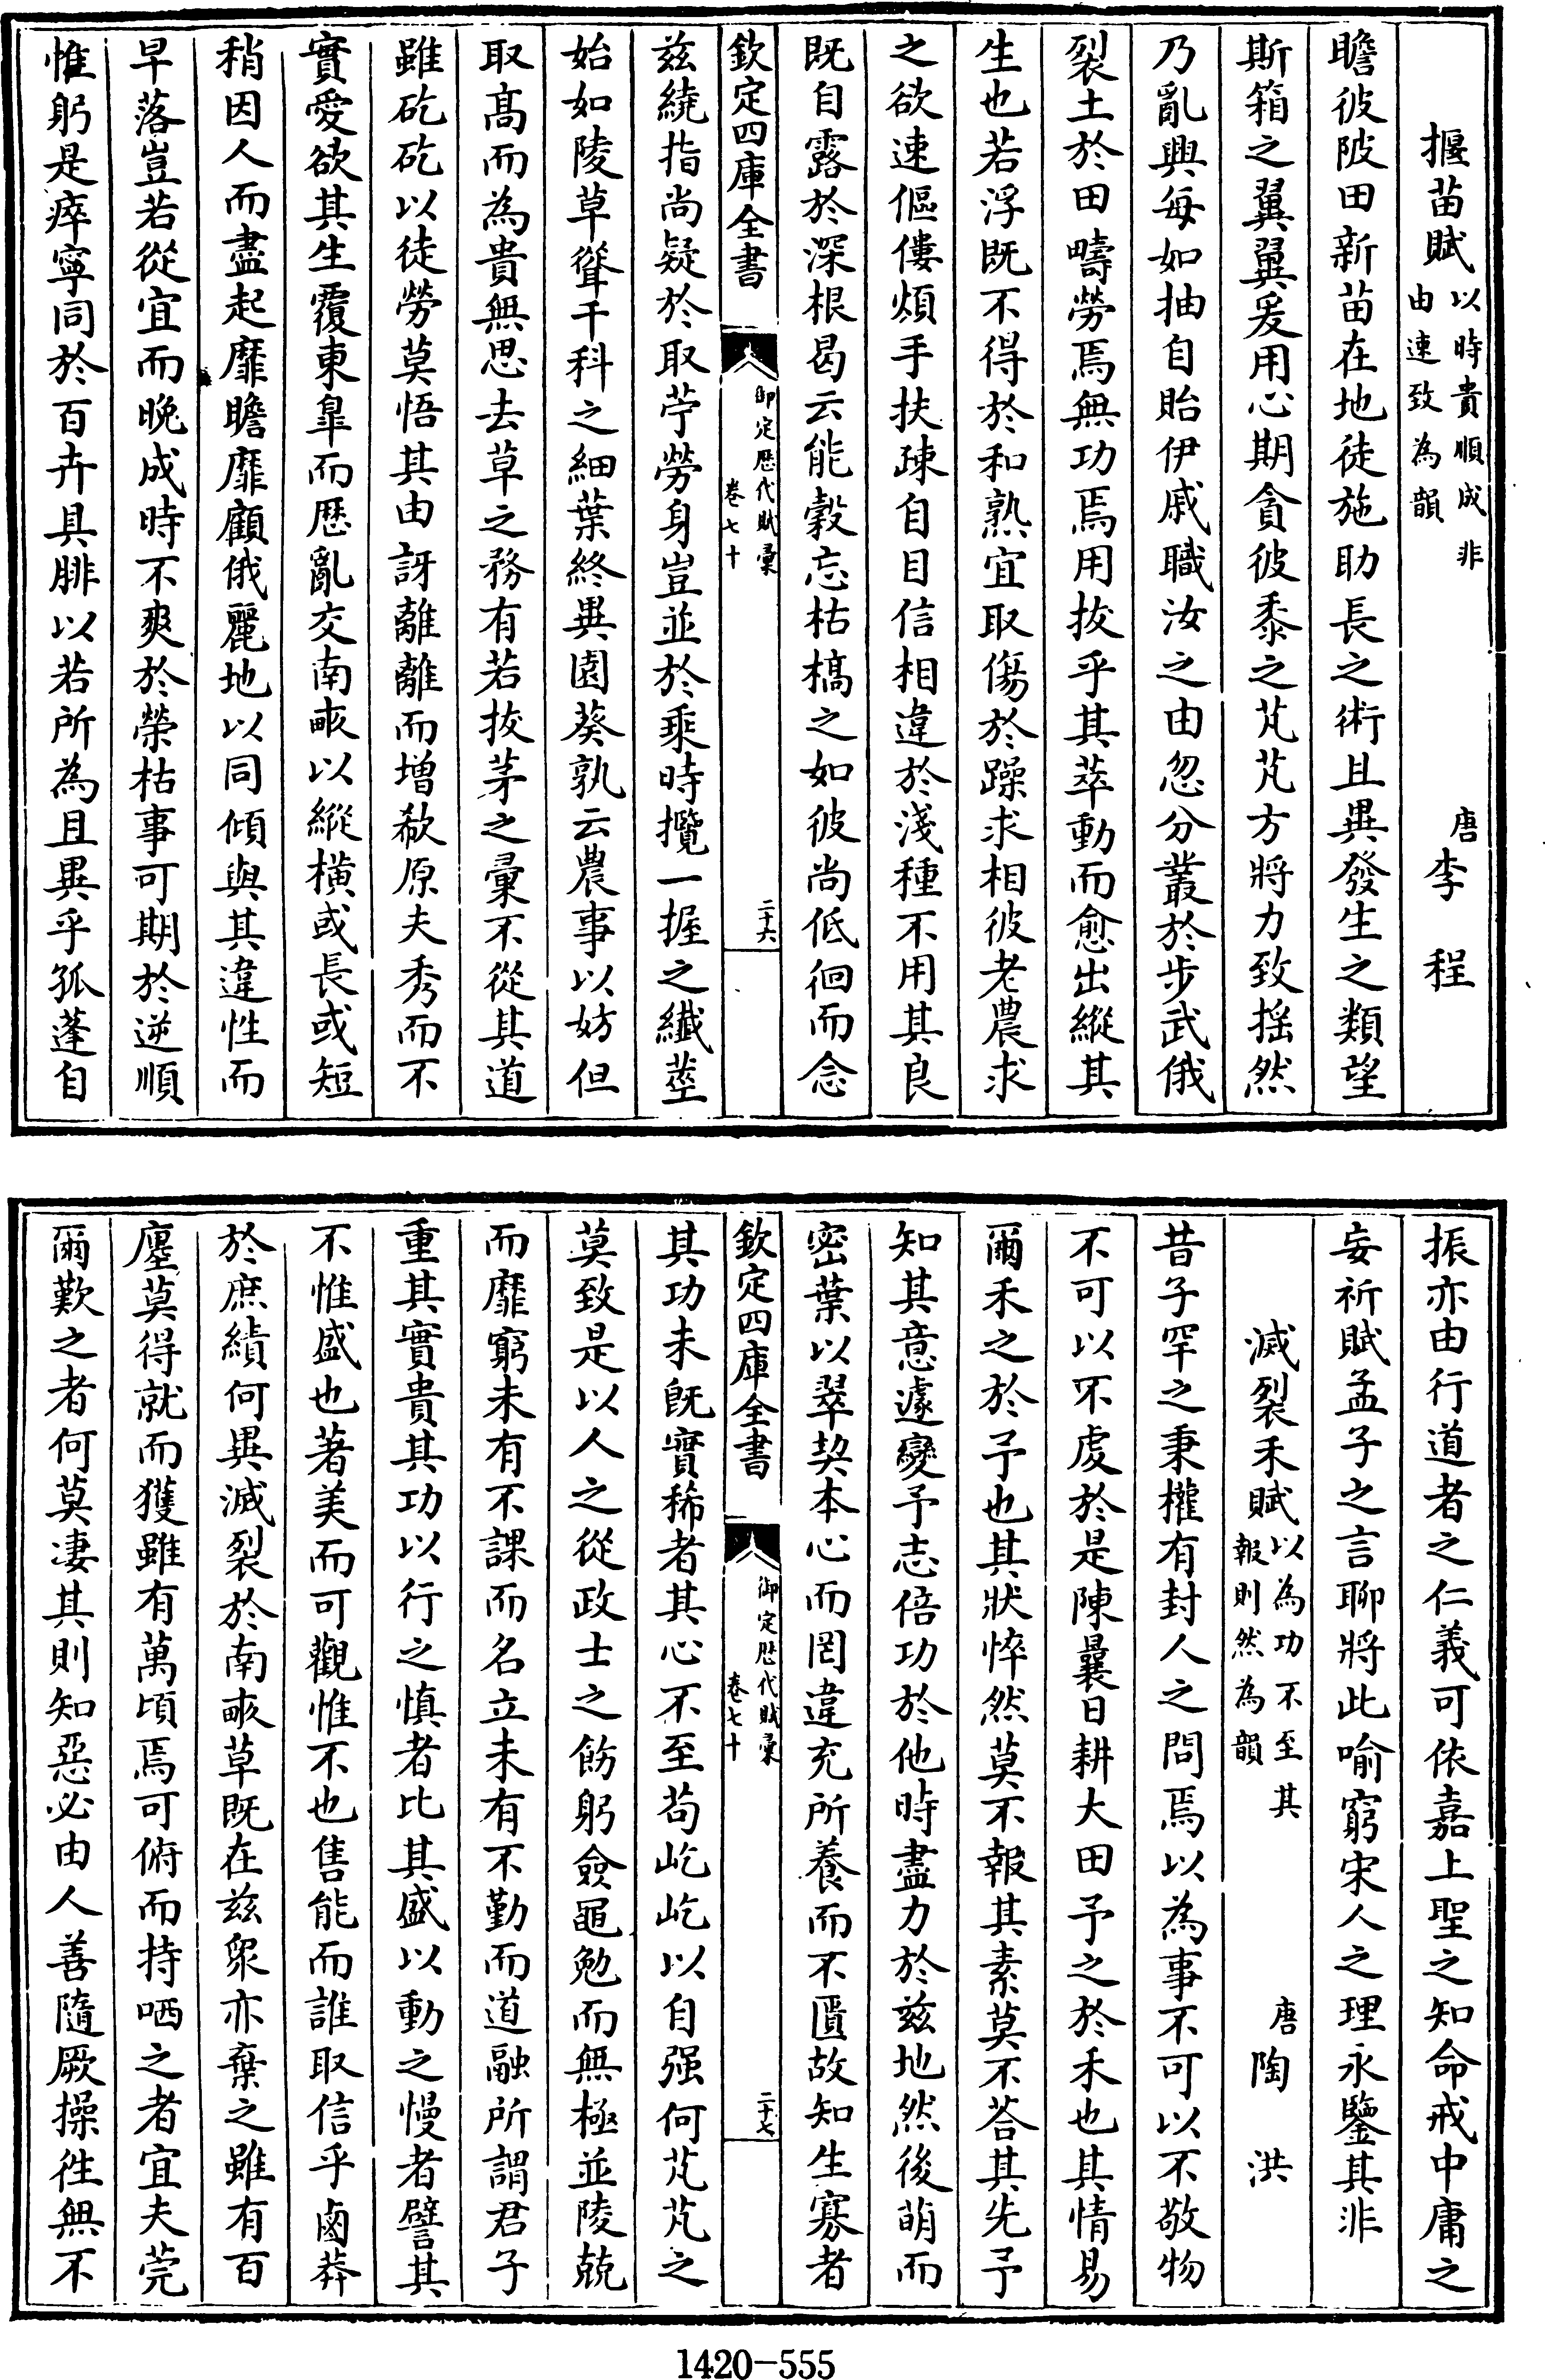 揠苗賦以時貴順成非由速致為韻 唐李程
瞻彼陂田新苗在地徒施助長之術且異發生之類望
斯箱之翼翼爰用心期貪彼黍之芃芃方將力致揺然
乃亂興每如抽自貽伊戚職汝之由忽分叢於步武俄
裂土於田疇勞焉無功焉用拔乎其萃動而愈出縱其
生也若浮既不得於和熟宜取傷於躁求相彼老農求
之欲速傴僂煩手扶疎自目信相違於淺種不用其良
既自露於深根曷云能穀忘枯槁之如彼尚低徊而念
欽定四庫全書 御定歴代賦彚卷七十 二十六
兹繞指尚疑於取苧勞身豈並於乘時攬一握之纖莖
始如陵草聳千科之細葉終異園葵孰云農事以妨但
取髙而為貴無思去草之務有若拔茅之彚不從其道
雖矻矻以徒勞莫悟其由訝離離而增欷原夫秀而不
實愛欲其生覆東臯而歴亂交南畞以縱横或長或短
稍因人而盡起靡瞻靡顧俄麗地以同傾與其違性而
早落豈若從宜而晚成時不爽於榮枯事可期於逆順
惟躬是瘁寧同於百卉具腓以若所為且異乎孤蓬自
振亦由行道者之仁義可依嘉上聖之知命戒中庸之
妄祈賦孟子之言聊將此喻窮宋人之理永鑒其非
滅裂禾賦以為功不至其報則然為韻 唐陶洪
昔子罕之秉權有封人之問焉以為事不可以不敬物
不可以不虔於是陳曩日耕大田予之於禾也其情易
爾禾之於予也其狀悴然莫不報其素莫不荅其先予
知其意遽變予志倍功於他時盡力於兹地然後萌而
密葉以翠契本心而罔違充所養而不匱故知生寡者
欽定四庫全書 御定歴代賦彚卷七十 二十七
其功未旣實稀者其心不至茍屹屹以自强何芃芃之
莫致是以人之從政士之飭躬僉黽勉而無極並陵兢
而靡窮未有不課而名立未有不勤而道融所謂君子
重其實貴其功以行之慎者比其盛以動之慢者譬其
不惟盛也著美而可觀惟不也售能而誰取信乎鹵莽
於庶績何異滅裂於南畞草既在兹衆亦棄之雖有百
廛莫得就而獲雖有萬頃焉可俯而持哂之者宜夫莞
爾歎之者何莫凄其則知惡必由人善隨厥操徃無不
1420-555